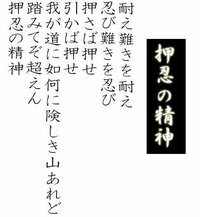 耐え難きを耐え
忍び難きを忍び
押さば押せ
引かば押せ
我が道に如何に険しき山あれど
踏みてぞ超えん
押忍の精神
押忍の精神